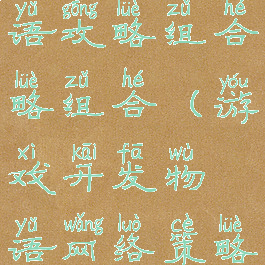 yǔ gōng lüè zǔ hé
语攻略组合
lüè zǔ hé yóu
略组合（游
xì kāi fā wù
戏开发物
yǔ wǎng luò cè lüè
语网络策略